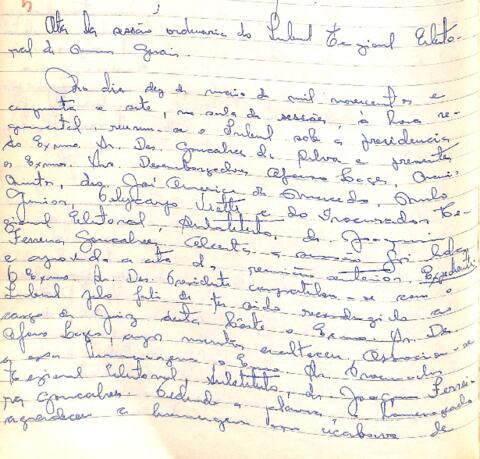 Ata da sessão ordinaria do Tribunal Regional Eleito-
ral de Minas Gerais.
Ao dia dez de maio de mil novecentos e
cinquenta e sete, na sala de sessões, à hora re-
gimental, reuniu-se o Tribunal sob a presidencia
do Exmo. Sr. Des. Gonçalves da Silva e presentes
os Exmos. Srs. Desembargadores Afonso Lages,
drs. José Americo de Macedo,
Junior, Policarpo Viotti e do Procurador Re-
gional Eleitoral, Substituto, dr. Joaquim
Ferreira Gonçalves. Aberta a sessão foi lida
e aprovada a ata da reunião anterior. Expediente:
O Exmo. Sr. Des. Presidente congratulou-se com o
Tribunal pelo fato de ter sido reconduzido ao
cargo de Juiz desta Côrte o Exmo. Sr. Des.
Afonso Lages, cujos meritos enalteceu, associou-se
a essa homenagem o Exmo. Sr. Procurador
Regional Eleitoral, Substituto, dr. Joaquim Ferrei-
ra Gonçalves. Pedindo a palavra, o homenageado
agradeceu a homenagem de